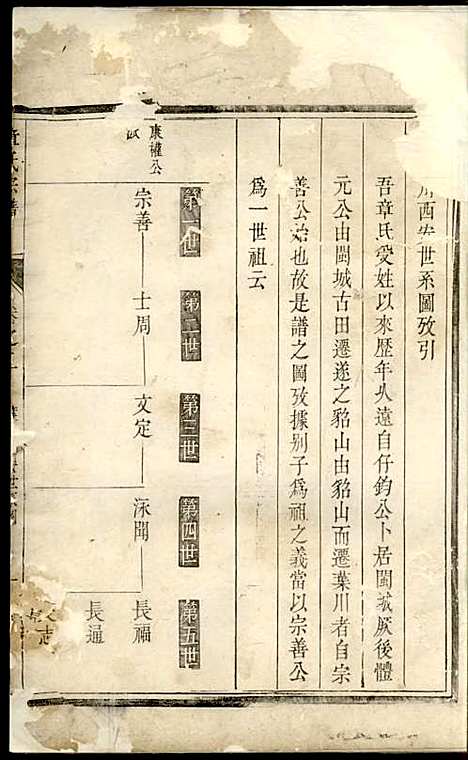 川西安世系圖攷引
吾章氏受姓以來歷年久遠自仔鈞公卜居閩城厥後體
元公由閩城古田遷遂之貂山由貂山而遷葉川者自宗
善公始也故是譜之圖攷據别子為祖之義當以宗善公
為一世祖云
第一世 第二世 第三世 第四世 第五世
康權公
宗善 士周 文定 泳聞 長福
長通
章氏宗譜